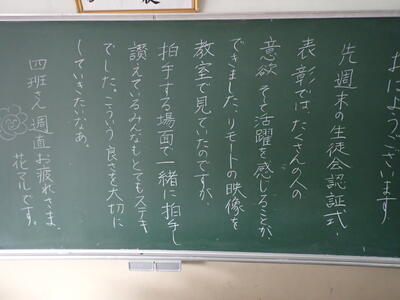 おはようございます
先週末の生徒会認証式・
表彰では、たくさんの人の
意欲そして活躍を感じることが、
できました。リモートの映像を
教室で見ていたのですが、
拍手する場面で一緒に拍手し
讃えているみんなもとてもステキ
でした。こういう良さを大切に
していきたいなあ。
四班さん週直お疲れさま、
花マルです。